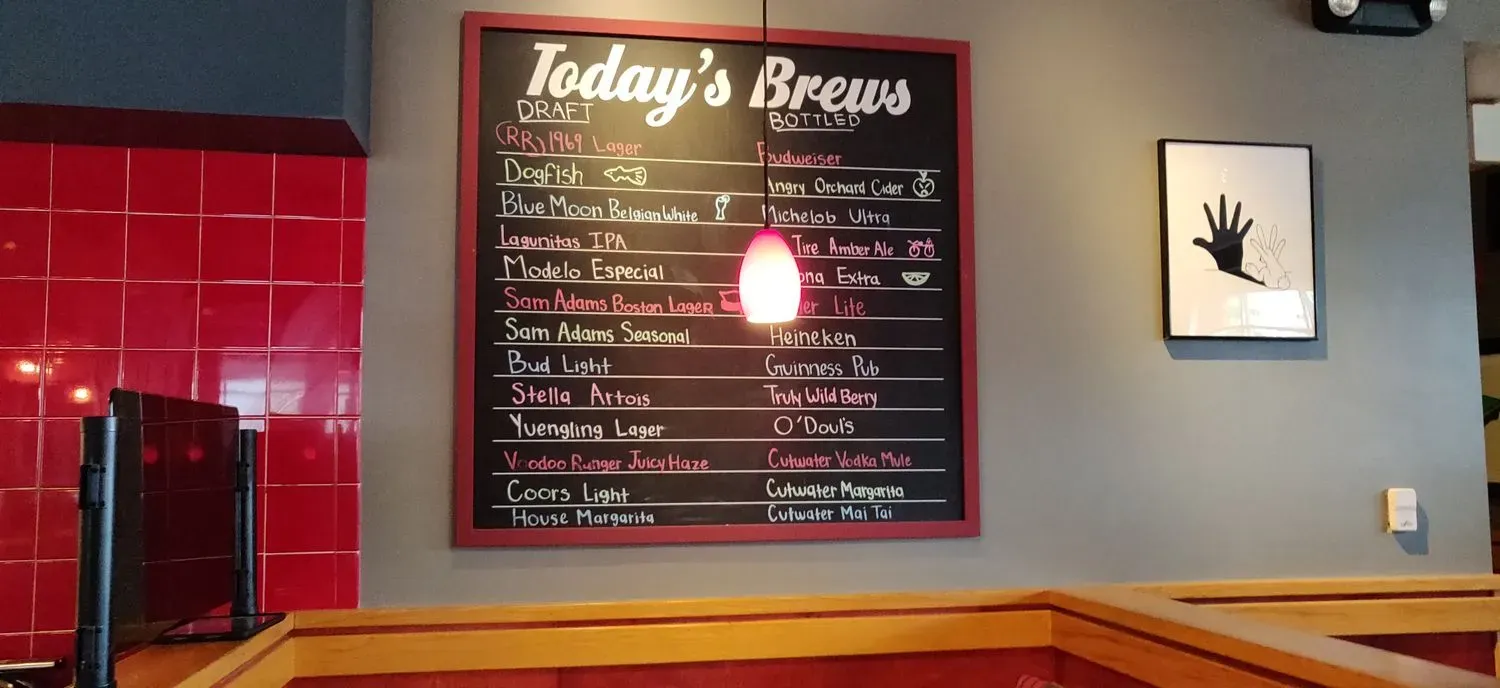 Today's Brews
DRAFT
(RR) 1969 Lager
Dogfish
Blue Moon Belgian White
Lagunitas IPA
Modelo Especial
Sam Adams Boston Lager
Sam Adams Seasonal
Bud Light
Stella Artois
Yuengling Lager
Voodoo Runger Juicy Haze
Coors Light
House Margarita
BOTTLED
Budweiser
Angry Orchard Cider
Michelob Ultra
Tire Amber Ale
Extra
Lite
Heineken
Guinness Pub
Truly Wild Berry
O'Doul's
Cutwater Vodka Mule
Cutwater Margarita
Cutwater Mai Tai